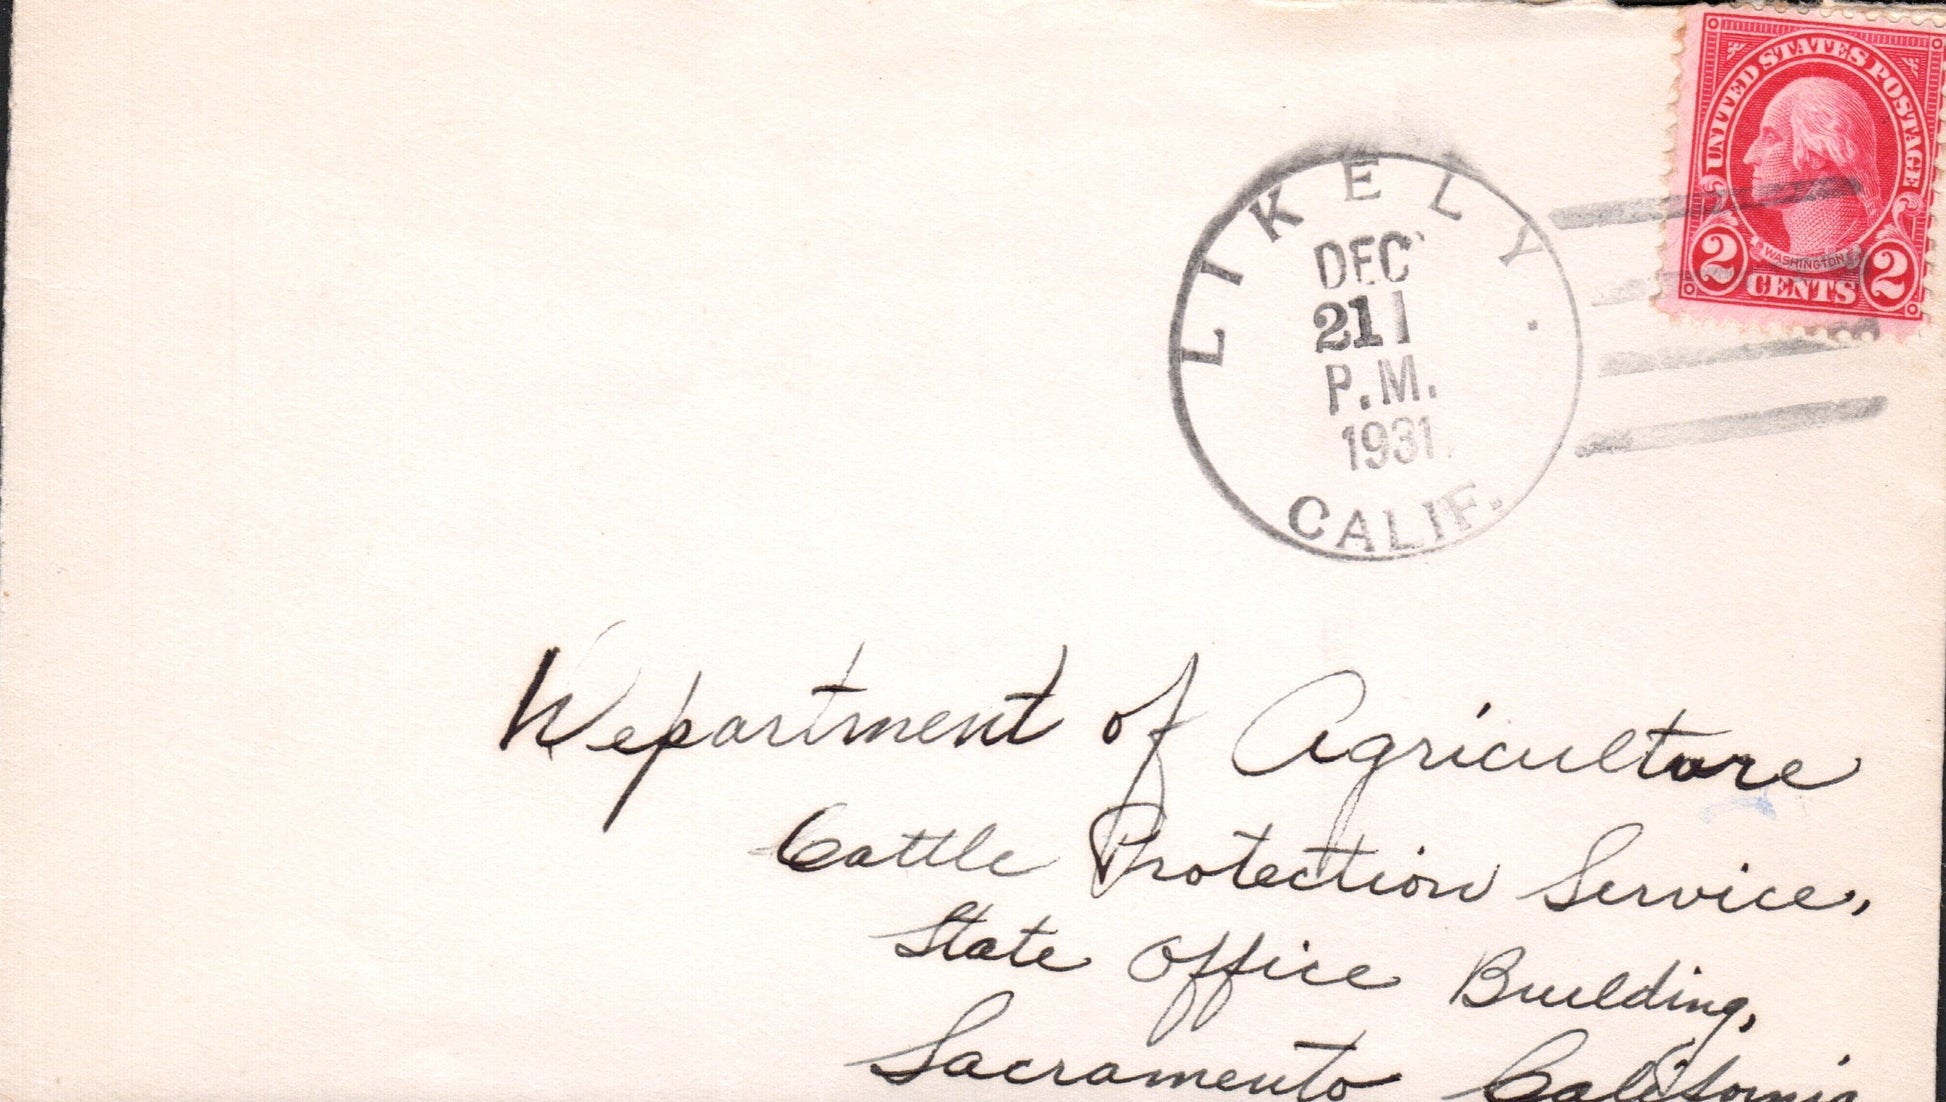 UNITED STATES POSTAGE
WASHINGTON
2 CENTS 2
LIKELY.
DEC
21 1
P.M.
1931.
CALIF.
Department of Agriculture
Cattle Protection Service,
State Office Building,
Sacramento California